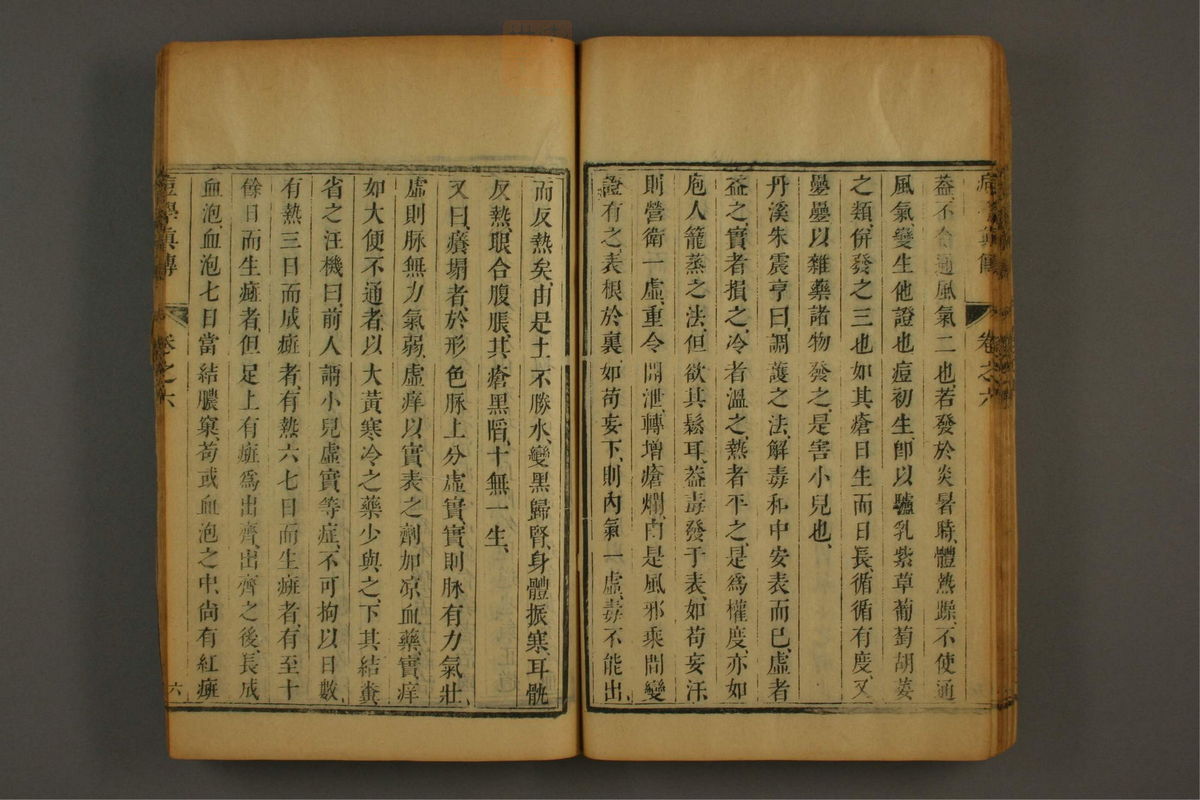 蓋不令通風氣二也若發於炎暑時體熱躁不使通
風氣變生他證也痘初生卽以驢乳紫草葡萄胡荽
之類倂發之三也如其瘡日生而日長循循有度又
㽮㽮以雜藥諸物發之是害小兒也
丹溪朱震亨曰調護之法解毒和中安表而已虛者
益之實者損之冷者溫之熱者平之是爲權度亦如
庖人籠蒸之法但欲其鬆耳葢毒發于表如苟妄汗
則營衛一虛重令開泄轉增瘡爛由是風邪乘間變
證有之表根於裏如苟妄下則內氣一虛毒不能出
而反熱矣由是土不勝水變黑歸腎身體振寒耳骩
反熱眼合腹脹其瘡黑䧟十無一生
又曰癢塌者於形色脉上分虛實實則脉有力氣壯
虛則脉無力氣弱虛痒以實表之劑加凉血藥實痒
如大便不通者以大黃寒冷之藥少與之下其結糞
省之汪機曰前人謂小兒虛實等症不可拘以日數
有熱三日而成癍者有熱六七日而生癍者有至十
餘日而生癍者但足上有癍爲出齊出齊之後長成
血泡血泡七日當結膿窠苟或血泡之中尙有紅癍
痘學眞傳 卷之六 六